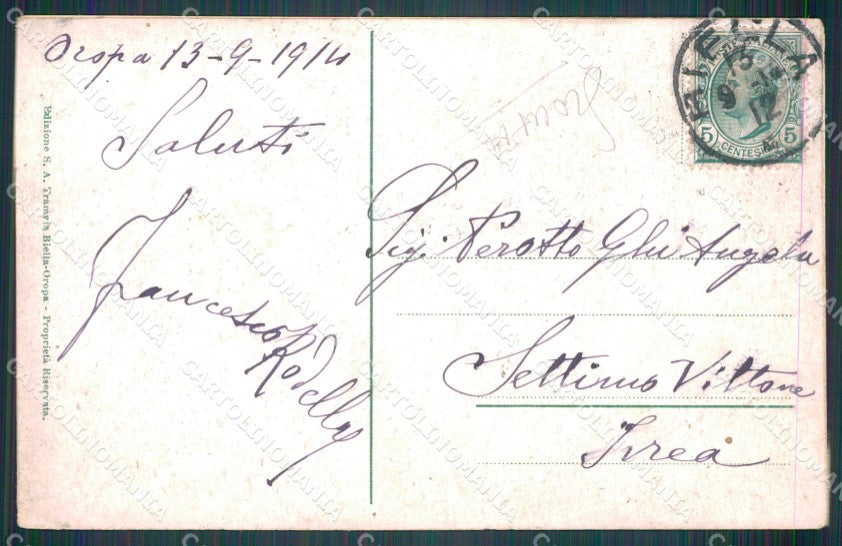 Oropa 13-9-1914
Saluti
Francesco
Rodella
Edizione S. A. Tramvia Biella-Oropa - Proprietà Riservata.
BIELLA
13
9
12
5 CENTESIMI 5
Sig. Perotto Ghi Angela
Settimo Vittone
Ivrea
CARTOLINOMANIA